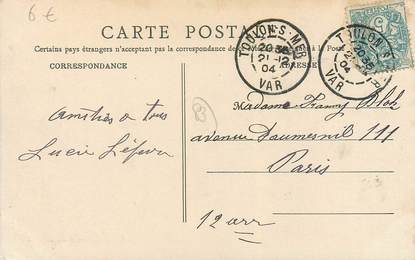 6 €
CARTE POSTALE
Certains pays étrangers n'acceptant pas la correspondance de
CORRESPONDANCE
ADRESSE
TOULON-S-MER
20 35
21 -12
04
VAR
TOULON-S-
20 35
21
04
VAR
Amitiés à tous
Lucie
Madame Fanny Bloch
avenue Daumesnil 111
Paris
12 arr